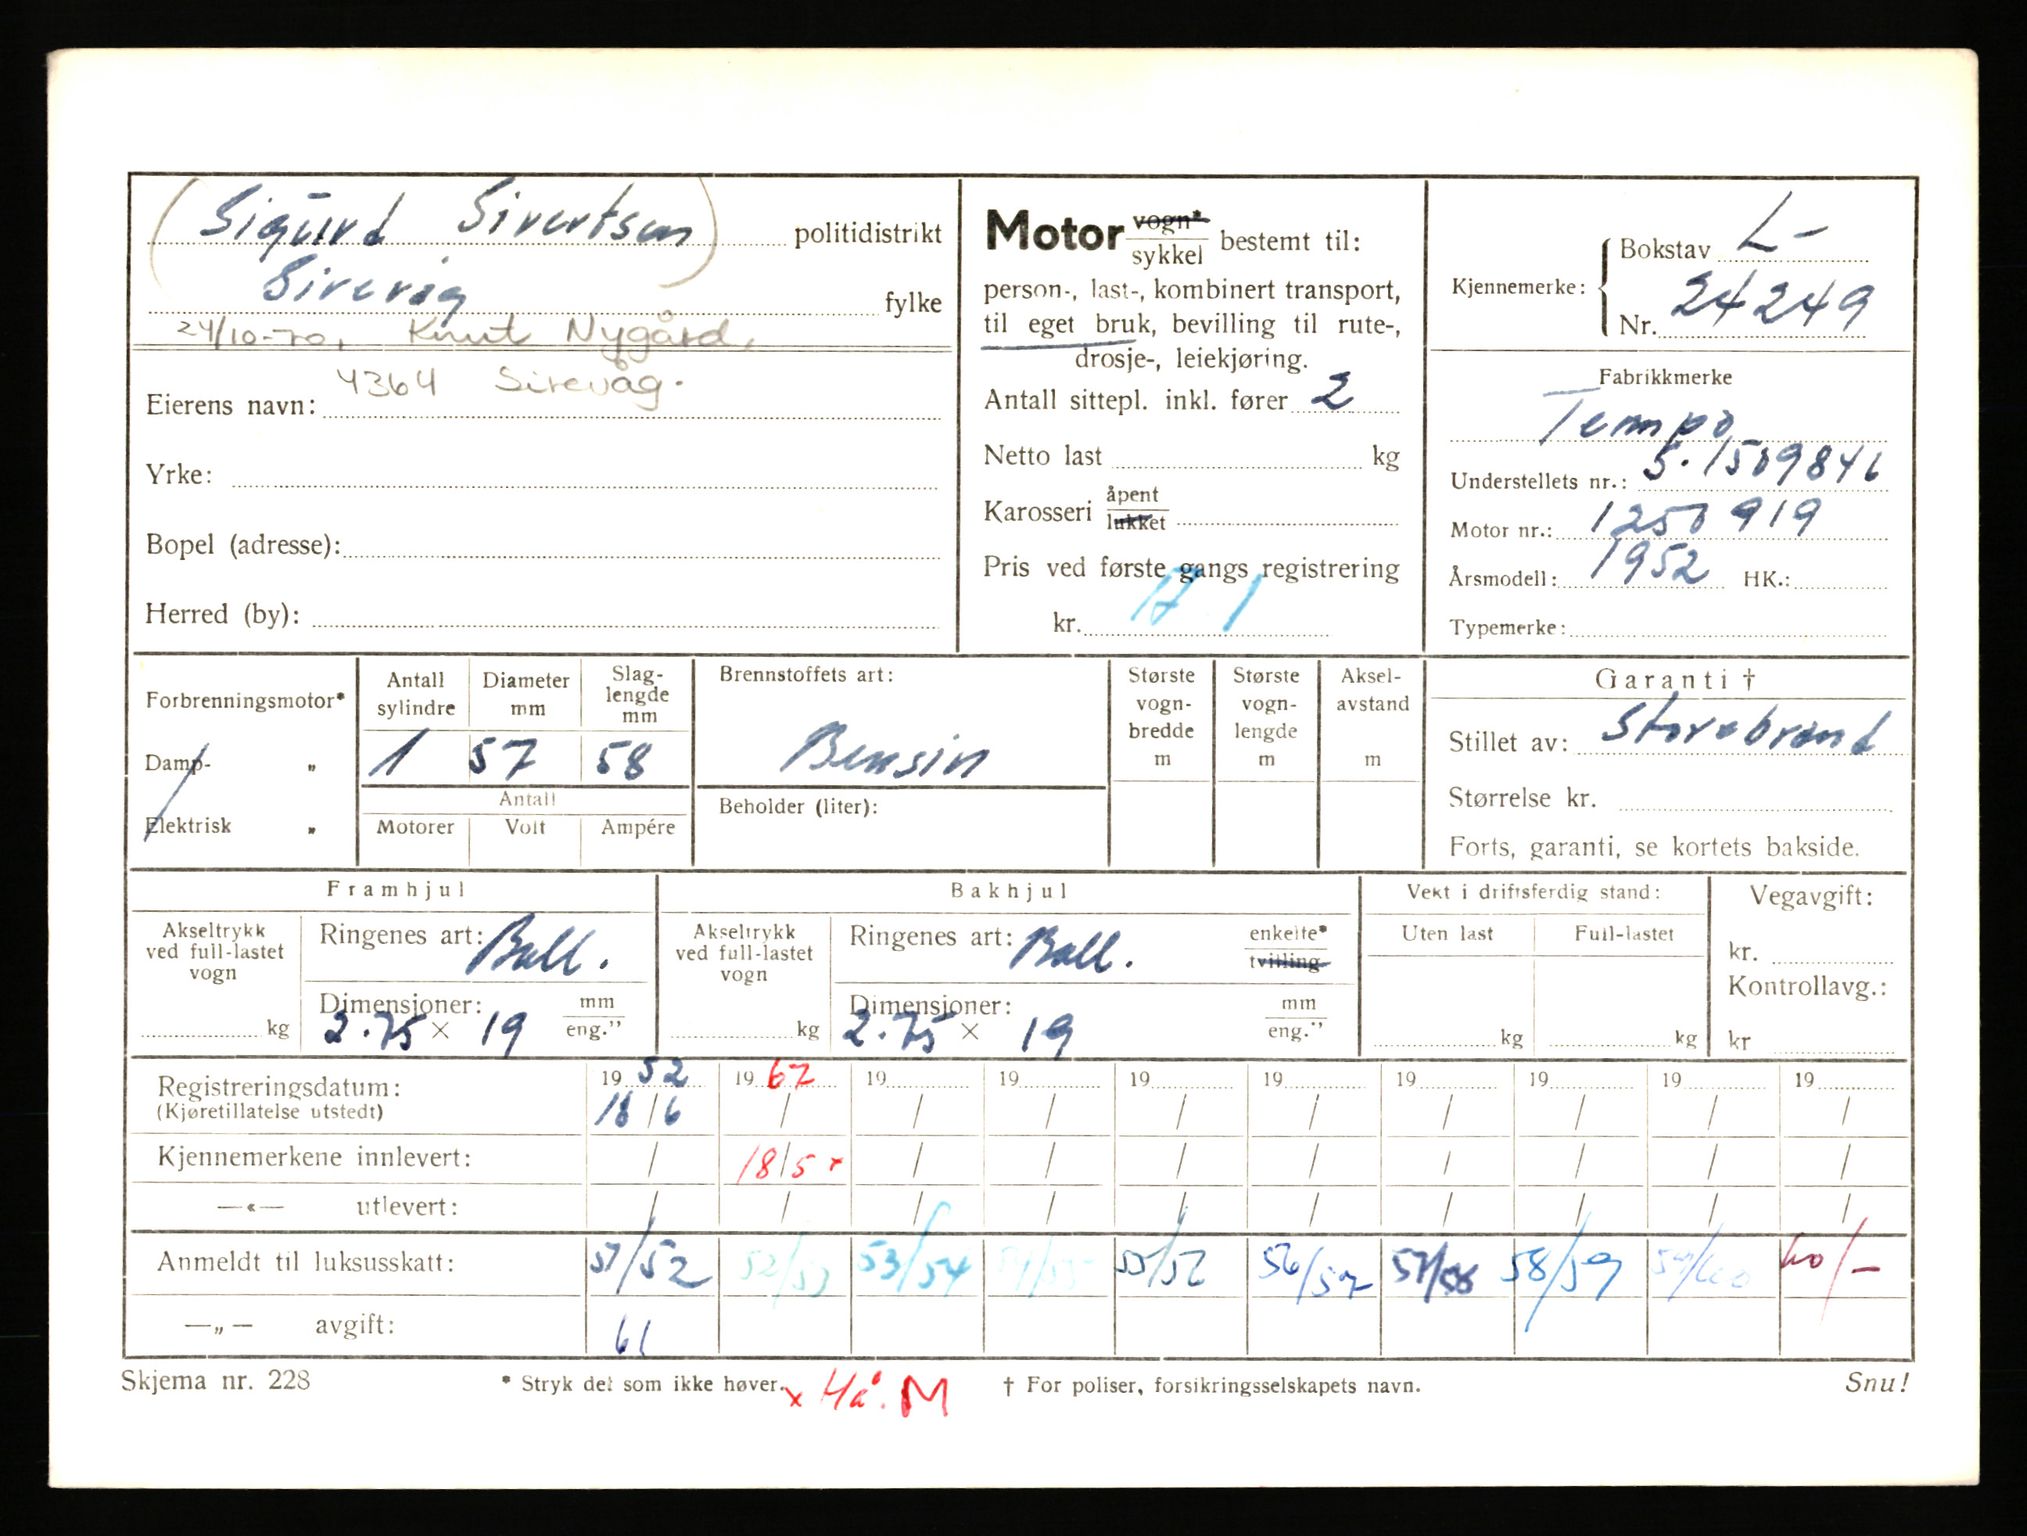 (Sigurd Sivertsen) politidistrikt
Sirevåg fylke
24/10-70, Knut Nygård,
4364 Sirevåg.
Eierens navn:
Yrke:
Bopel (adresse):
Herred (by):
Motor vogn* / sykkel bestemt til:
person-, last-, kombinert transport,
til eget bruk, bevilling til rute-,
drosje-, leiekjøring.
Antall sittepl. inkl. fører 2
Netto last kg
Karosseri åpent / lukket
Pris ved første gangs registrering
kr.
Kjennemerke: Bokstav L-
Nr. 24249
Fabrikkmerke
Tempo
Understellets nr.: 5.1509846
Motor nr.: 1250919
Årsmodell: 1952 HK.:
Typemerke:
Forbrenningsmotor*
Damp- "
Elektrisk "
Antall sylindre Diameter mm Slag-lengde mm
1 57 58
Antall
Motorer Volt Ampére
Brennstoffets art:
Bensin
Beholder (liter):
Største vogn-bredde m
Største vogn-lengde m
Aksel-avstand m
Garanti †
Stillet av: Storebrand
Størrelse kr.
Forts, garanti, se kortets bakside.
Framhjul
Akseltrykk ved full-lastet vogn kg
Ringenes art: Ball.
Dimensjoner: mm / eng."
2.75 × 19
Bakhjul
Akseltrykk ved full-lastet vogn kg
Ringenes art: Ball. enkelte* / tvilling
Dimensjoner: mm / eng."
2.75 × 19
Vekt i driftsferdig stand:
Uten last Full-lastet
kg kg
Vegavgift:
kr.
Kontrollavg.:
kr
Registreringsdatum: 19 52 19 67 19 19 19 19 19 19 19 19
(Kjøretillatelse utstedt) 18/6 / / / / / / / / /
Kjennemerkene innlevert: / 18/5 x / / / / / / / /
—«— utlevert: / / / / / / / / / /
Anmeldt til luksusskatt: 51/52 52/53 53/54 54/55 55/56 56/57 57/58 58/59 59/60 60/—
—„— avgift: 61
Skjema nr. 228 * Stryk det som ikke høver. x Hå. M † For poliser, forsikringsselskapets navn. Snu!